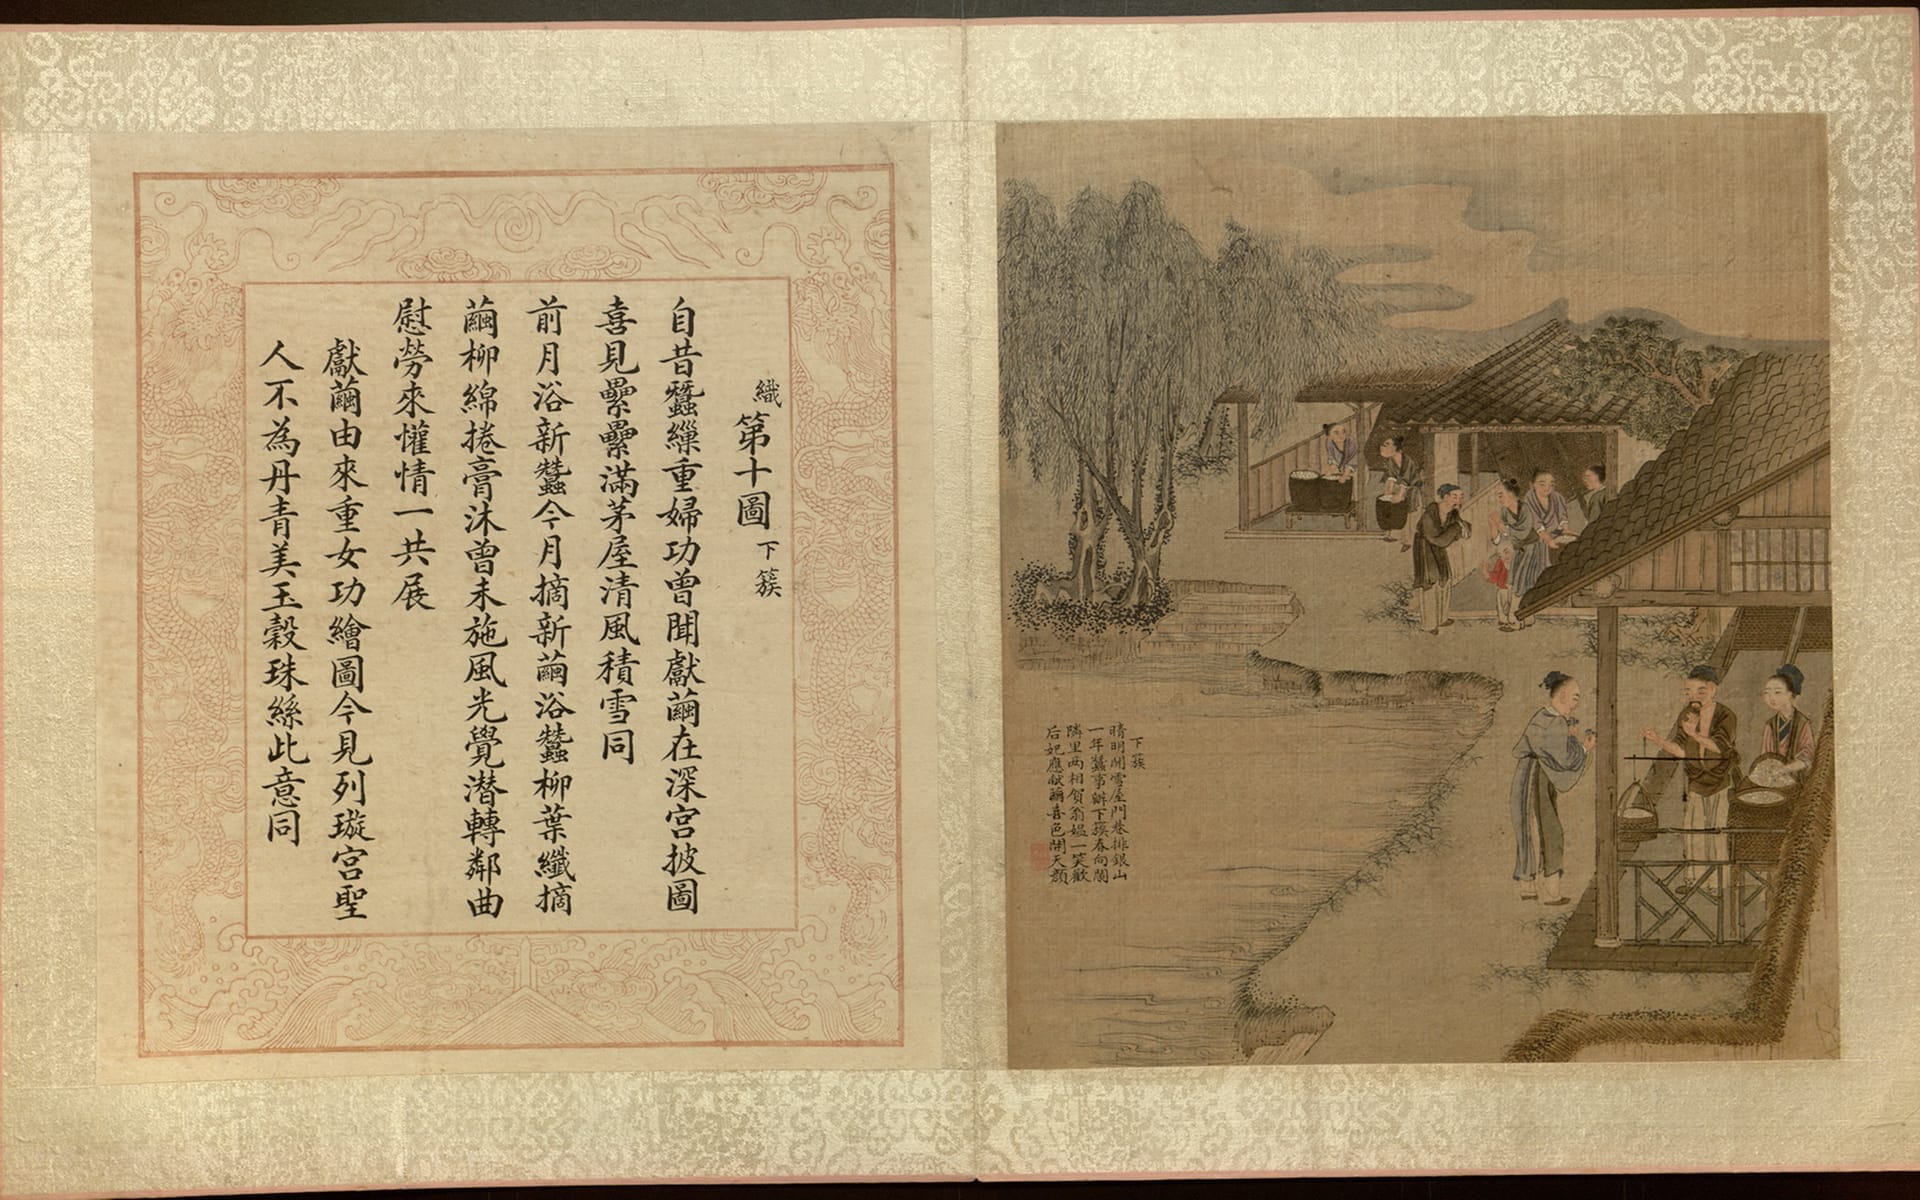 織第十圖下簇
自昔蠶繅重婦功曾聞獻繭在深宮披圖
喜見纍纍滿茅屋清風積雪同
前月浴新蠶今月摘新繭浴蠶柳葉纖摘
繭柳綿捲膏沐曾未施風光覺潜轉鄰曲
慰勞來懽情一共展
獻繭由來重女功繪圖今見列璇宮聖
人不為丹青美玉穀珠絲此意同
下簇
晴明開雪屋門巷排銀山
一年蠶事辦下簇春向闌
隣里两相贺翁媪一笑歡
后妃應献繭喜色開天顏